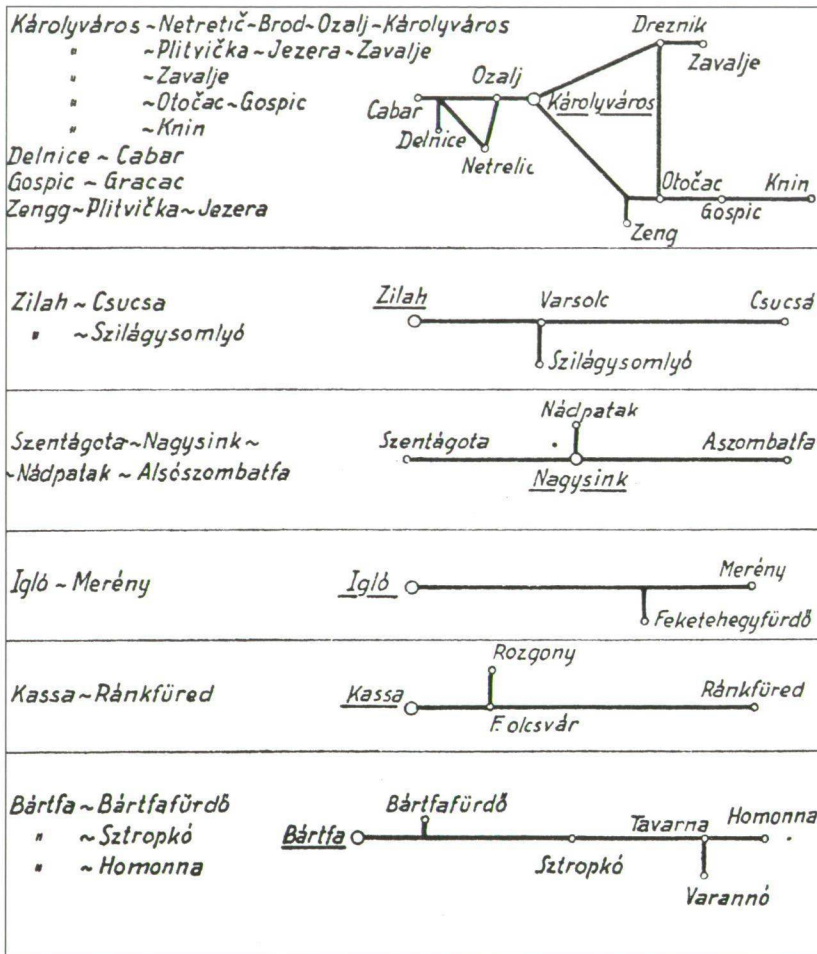 Károlyváros ~ Netretič~Brod~Ozalj~Károlyváros
" ~Plitvička~Jezera~Zavalje
" ~Zavalje
" ~Otočac~Gospic
" ~Knin
Delnice ~ Cabar
Gospic ~ Gracac
Zengg~Plitvička~Jezera
Dreznik
Zavalje
Ozalj
Cabar
Károlyváros
Delnice
Netrelic
Otočac
Knin
Gospic
Zeng
Zilah ~ Csucsa
" ~Szilágysomlyó
Zilah
Varsolc
Csucsá
Szilágysomlyó
Szentágota~Nagysink~
~Nádpatak ~ Alsószombatfa
Nádpatak
Szentágota
Aszombatfa
Nagysink
Igló ~ Merény
Igló
Merény
Feketehegyfürdő
Kassa~Ránkfüred
Rozgony
Kassa
Ránkfüred
F. olcsvár
Bártfa ~ Bártfafürdő
" ~Sztropkó
" ~Homonna
Bártfafürdő
Bártfa
Tavarna
Homonna
Sztropkó
Varannó